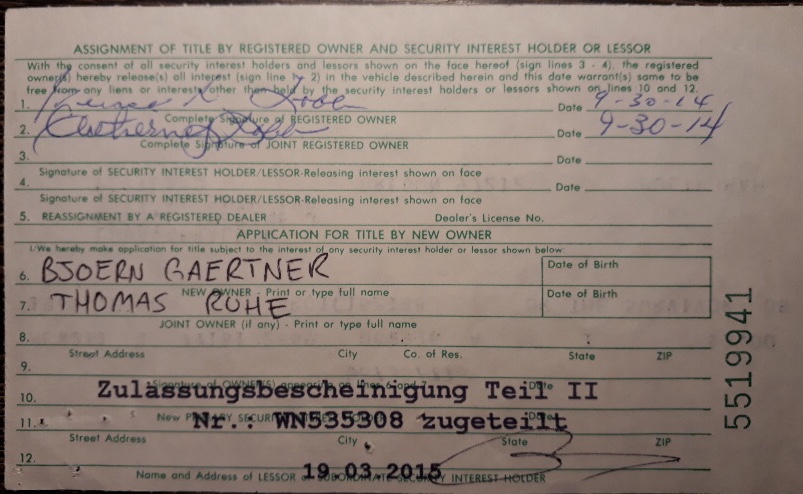 ASSIGNMENT OF TITLE BY REGISTERED OWNER AND SECURITY INTEREST HOLDER OR LESSOR
With the consent of all security interest holders and lessors shown on the face hereof (sign lines 3 - 4), the registered
owner(s) hereby release(s) all interest (sign line 1, 2) in the vehicle described herein and this date warrant(s) same to be
free from any liens or interests other then held by the security interest holders or lessors shown on lines 10 and 12.
1. Date 9-30-14
Complete Signature of REGISTERED OWNER
2. Date 9-30-14
Complete Signature of JOINT REGISTERED OWNER
3. Date
Signature of SECURITY INTEREST HOLDER/LESSOR-Releasing interest shown on face
4. Date
Signature of SECURITY INTEREST HOLDER/LESSOR-Releasing interest shown on face
5. REASSIGNMENT BY A REGISTERED DEALER Dealer's License No.
APPLICATION FOR TITLE BY NEW OWNER
I/We hereby make application for title subject to the interest of any security interest holder or lessor shown below:
6. BJOERN GAERTNER Date of Birth
NEW OWNER - Print or type full name
7. THOMAS RUHE Date of Birth
JOINT OWNER (if any) - Print or type full name
8.
Street Address City Co. of Res. State ZIP
9.
Signature of OWNER(S) appearing on lines 6 and 7 Date
10. Zulassungsbescheinigung Teil II
New PRIMARY SECURITY Date
11. Nr.: WN535308 zugeteilt
Street Address City State ZIP
12. 19.03.2015
Name and Address of LESSOR or SUBORDINATE SECURITY INTEREST HOLDER
5519941